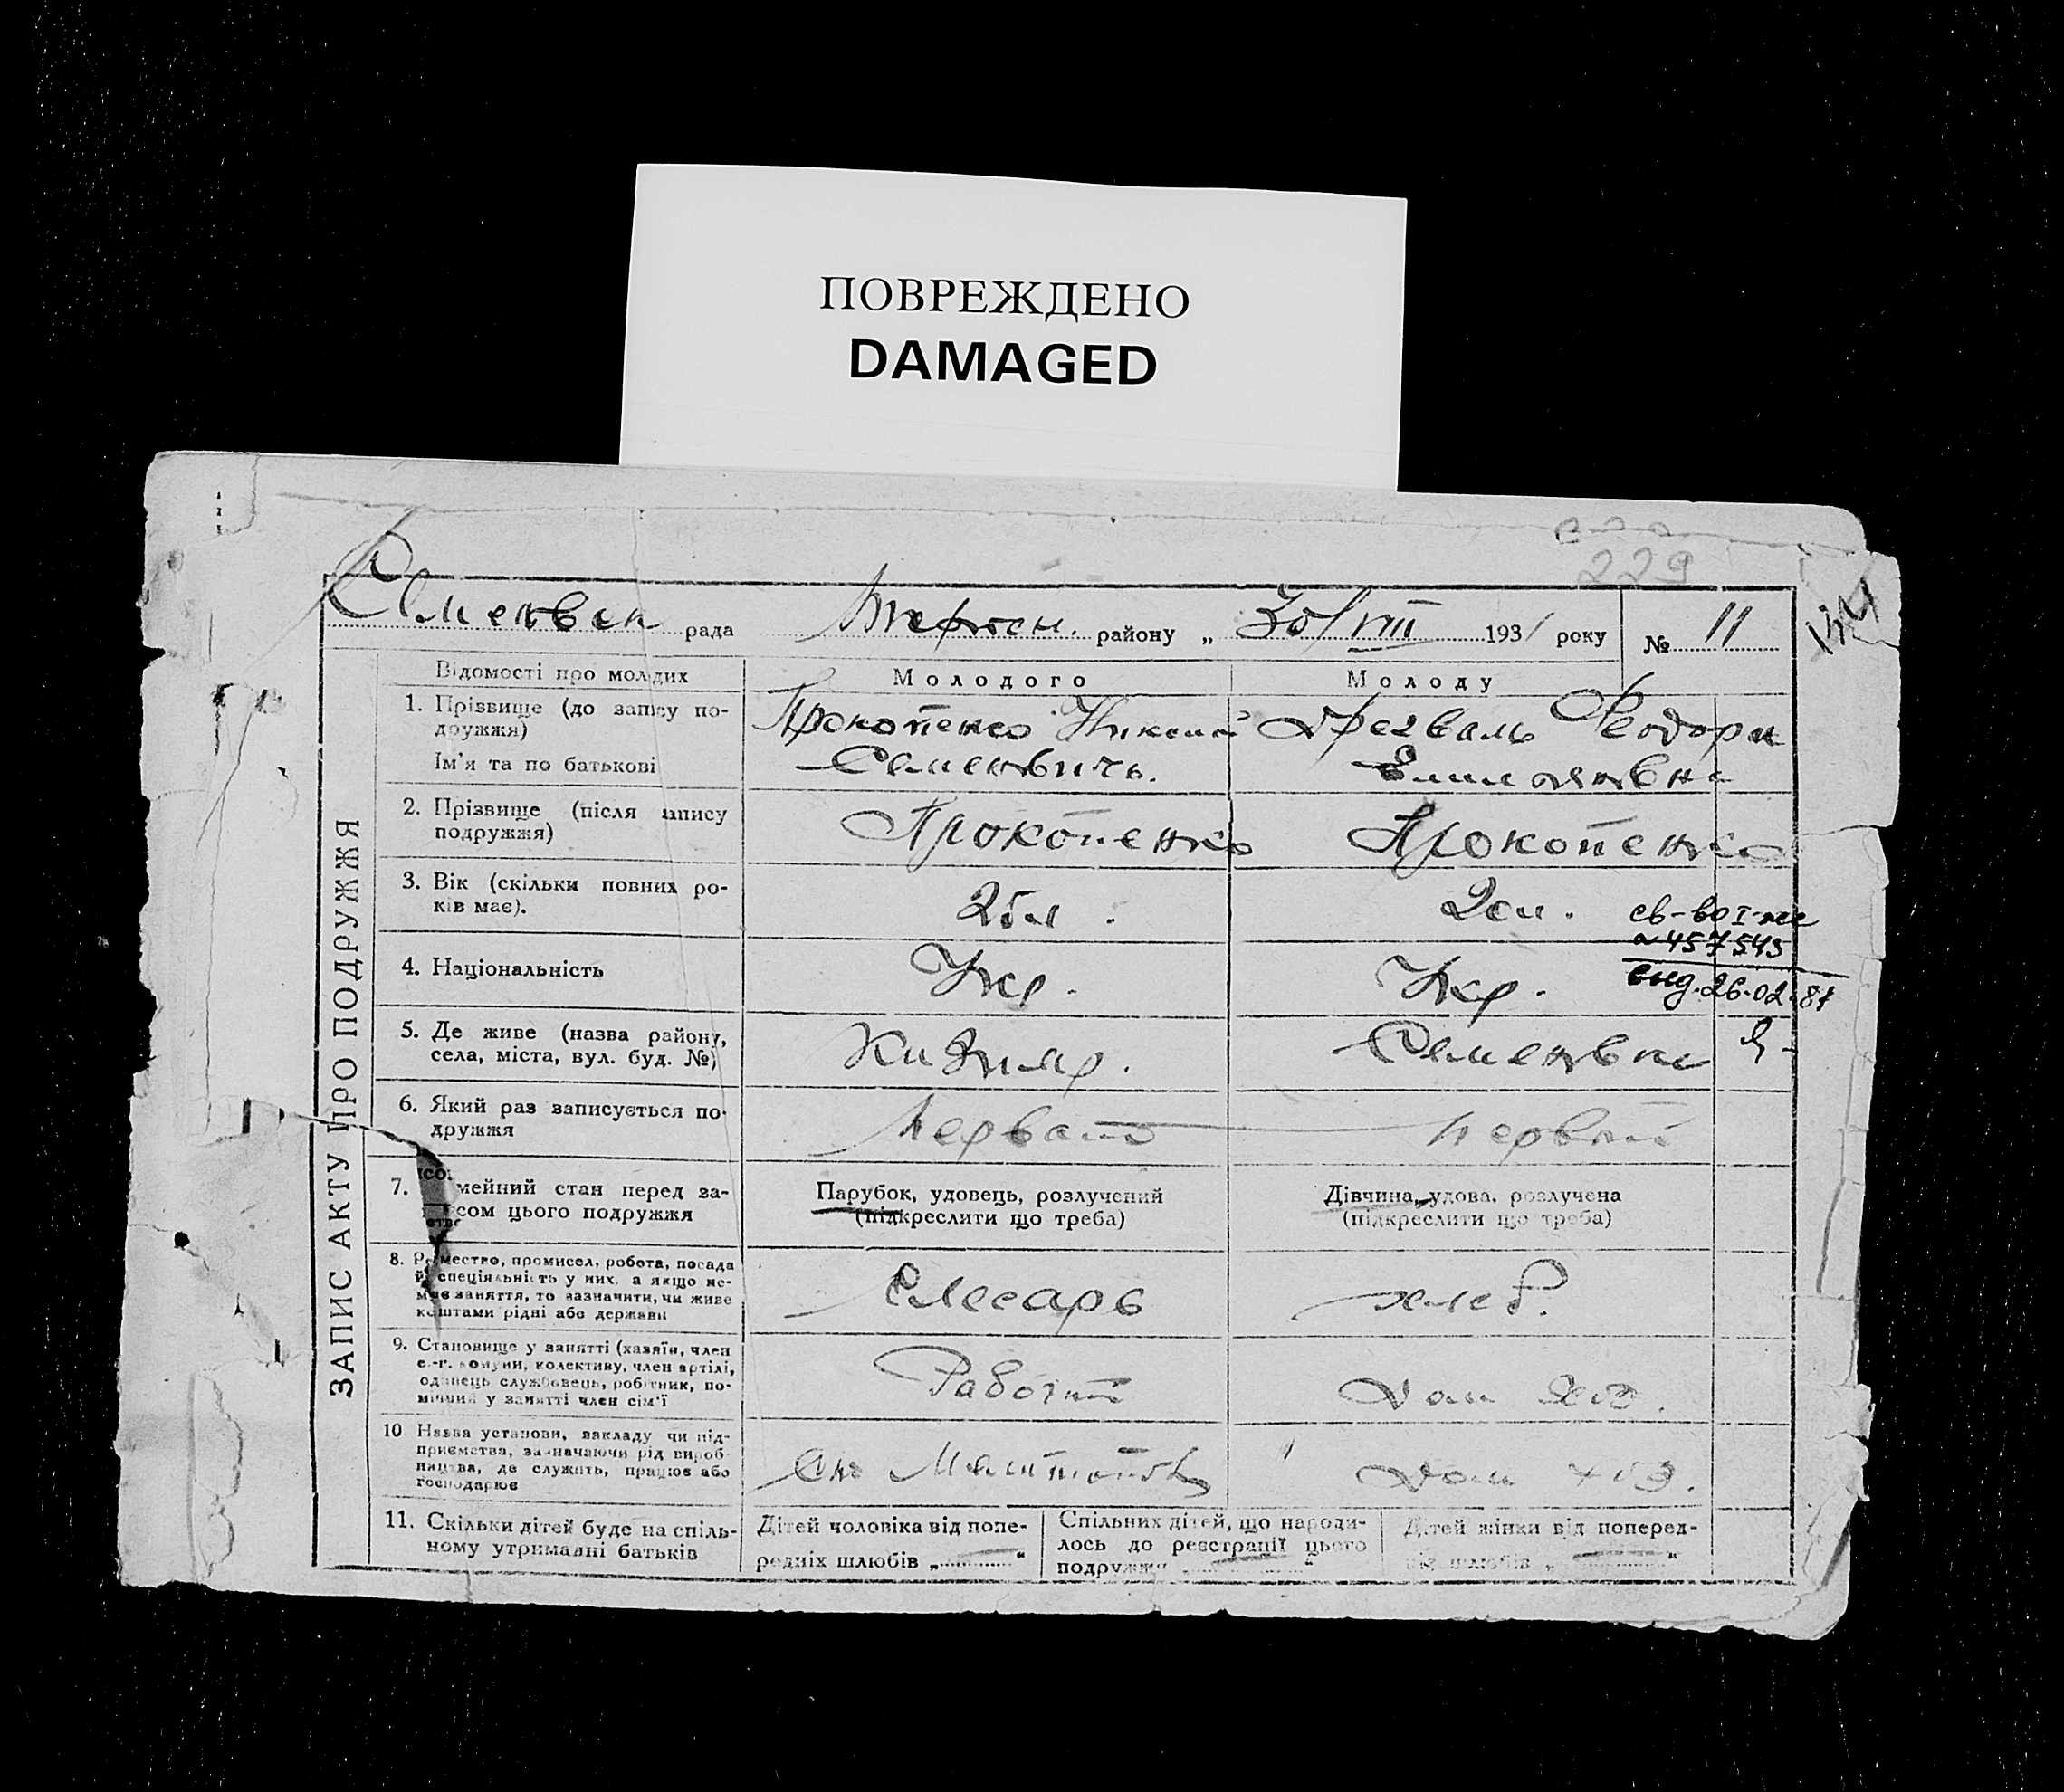 ПОВРЕЖДЕНО
DAMAGED
229
Семенвск рада района району „ 30/VIII 1931 року № 11
Відомості про молодих Молодого Молоду
1. Прізвище (до запису по-
дружжя)
Ім'я та по батькові
Прокопенко Николай
Семенвичъ.
Дрегваль Феодора
Емилянвна
2. Прізвище (після запису
подружжя)
Прокопенко Прокопенко
3. Вік (скільки повних ро-
ків має).
25л. 20л.
св-во І-
457543
вид. 26.02.81
4. Національність Укр. Укр.
5. Де живе (назва району,
села, міста, вул. буд. №)
Кизияр. Семенвка
6. Який раз записується по-
дружжя
первый первый
7. мейний стан перед за-
сом цього подружжя
Парубок, удовець, розлучений
(підкреслити що треба)
Дівчина, удова, розлучена
(підкреслити що треба)
8. Ремество, промисел, робота, посада
й спеціяльність у них, а якщо не-
має заняття, то зазначити, чи живе
коштами рідні або держави
Слесарь хлеб.
9. Становище у занятті (хазяїн, член
с.-г. комуни, колективу, член артілі,
одинець службовець, робітник, по-
мічний у занятті член сім'ї
Рабочий Дом хоз.
10 Назва установи, закладу чи під-
приємства, зазначаючи рід вироб-
ництва, де служить, працює або
господарює
Дом хоз.
11. Скільки дітей буде на спіль-
ному утриманні батьків
Дітей чоловіка від попе-
редніх шлюбів „ “
Спільних дітей, що народи-
лось до реєстрації цього
подружжя „ “
Дітей жінки від поперед-
ніх шлюбів „ “
ЗАПИС АКТУ ПРО ПОДРУЖЖЯ